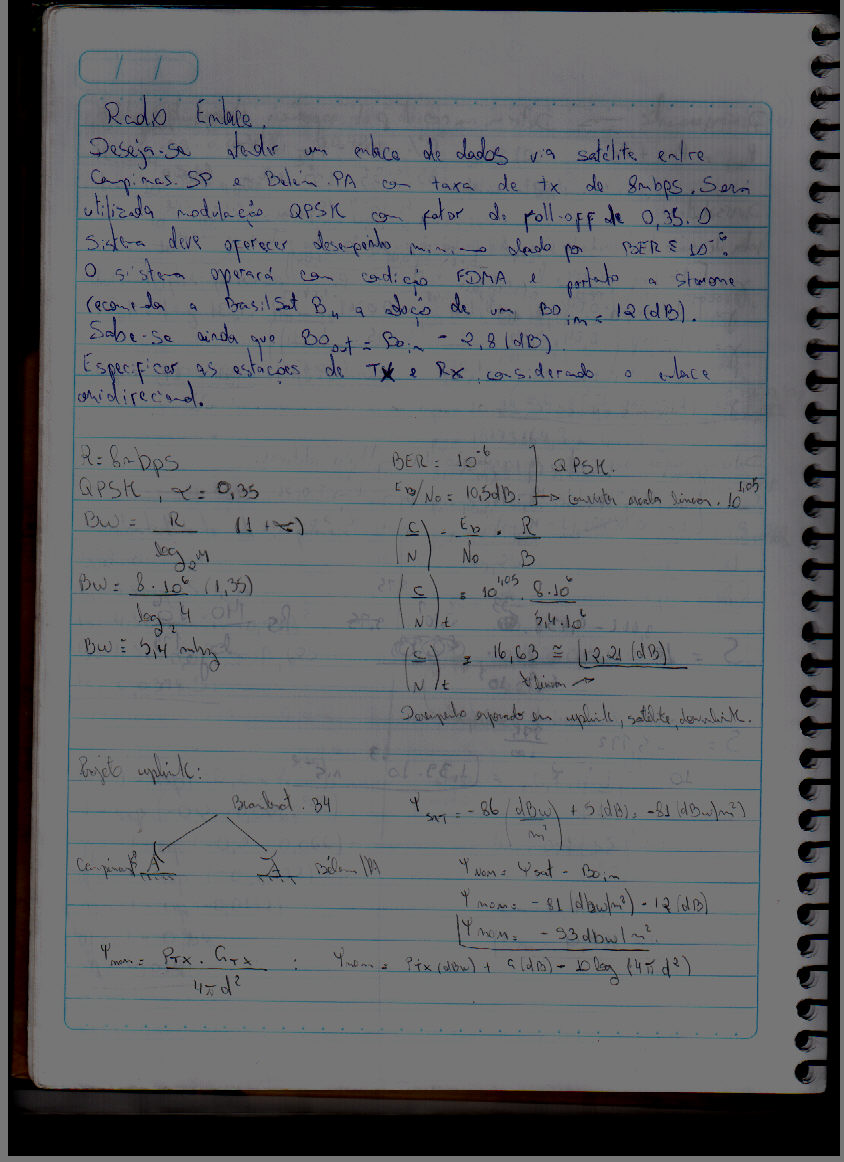 / /
Radio Enlace.
Deseja-se atendir um enlace de dados via satélite entre
Campinas.SP e Belém.PA com taxa de tx de 8mbps. Será
utilizada modulação QPSK com fator de roll-off de 0,35. O
sistema deve oferecer desempenho minimo dado por BER ≅ 10⁻⁶.
O sistema operará com condição FDMA e portato a Starone
recomenda a BrasilSat B4 a adoção de um BO in = 12 (dB).
Sabe-se ainda que BO out = Bo in - 2,8 (dB).
Especificar as estações de Tx e Rx, considerando o enlace
unidirecional.
R = 8mbps BER = 10⁻⁶ QPSK.
QPSK, α = 0,35 Eb/No = 10,5dB. → escala linear. 10^1,05
BW = R/log₂M (1+α) (C/N) = Eb/No · R/B
BW = 8·10⁶/log₂4 (1,35) (C/N)t = 10^1,05 · 8·10⁶/5,4·10⁶
BW = 5,4 mhz (C/N)t = 16,63 ≅ 12,21 (dB)
linear →
Desempenho esperado em uplink, satélite, downlink.
Projeto uplink:
Brasilsat. B4 Ψ SAT = -86 (dBw/m²) + 5(dB) = -81 (dBw/m²)
Campinas Belém/PA Ψ nom = Ψ sat - Bo in
Ψ nom = -81 (dbw/m²) - 12 (dB)
Ψ nom = -93dbw/m².
Ψ nom = PTx · GTx / 4πd² : Ψ nom = PTx (dBw) + G (dB) - 10 log (4πd²)